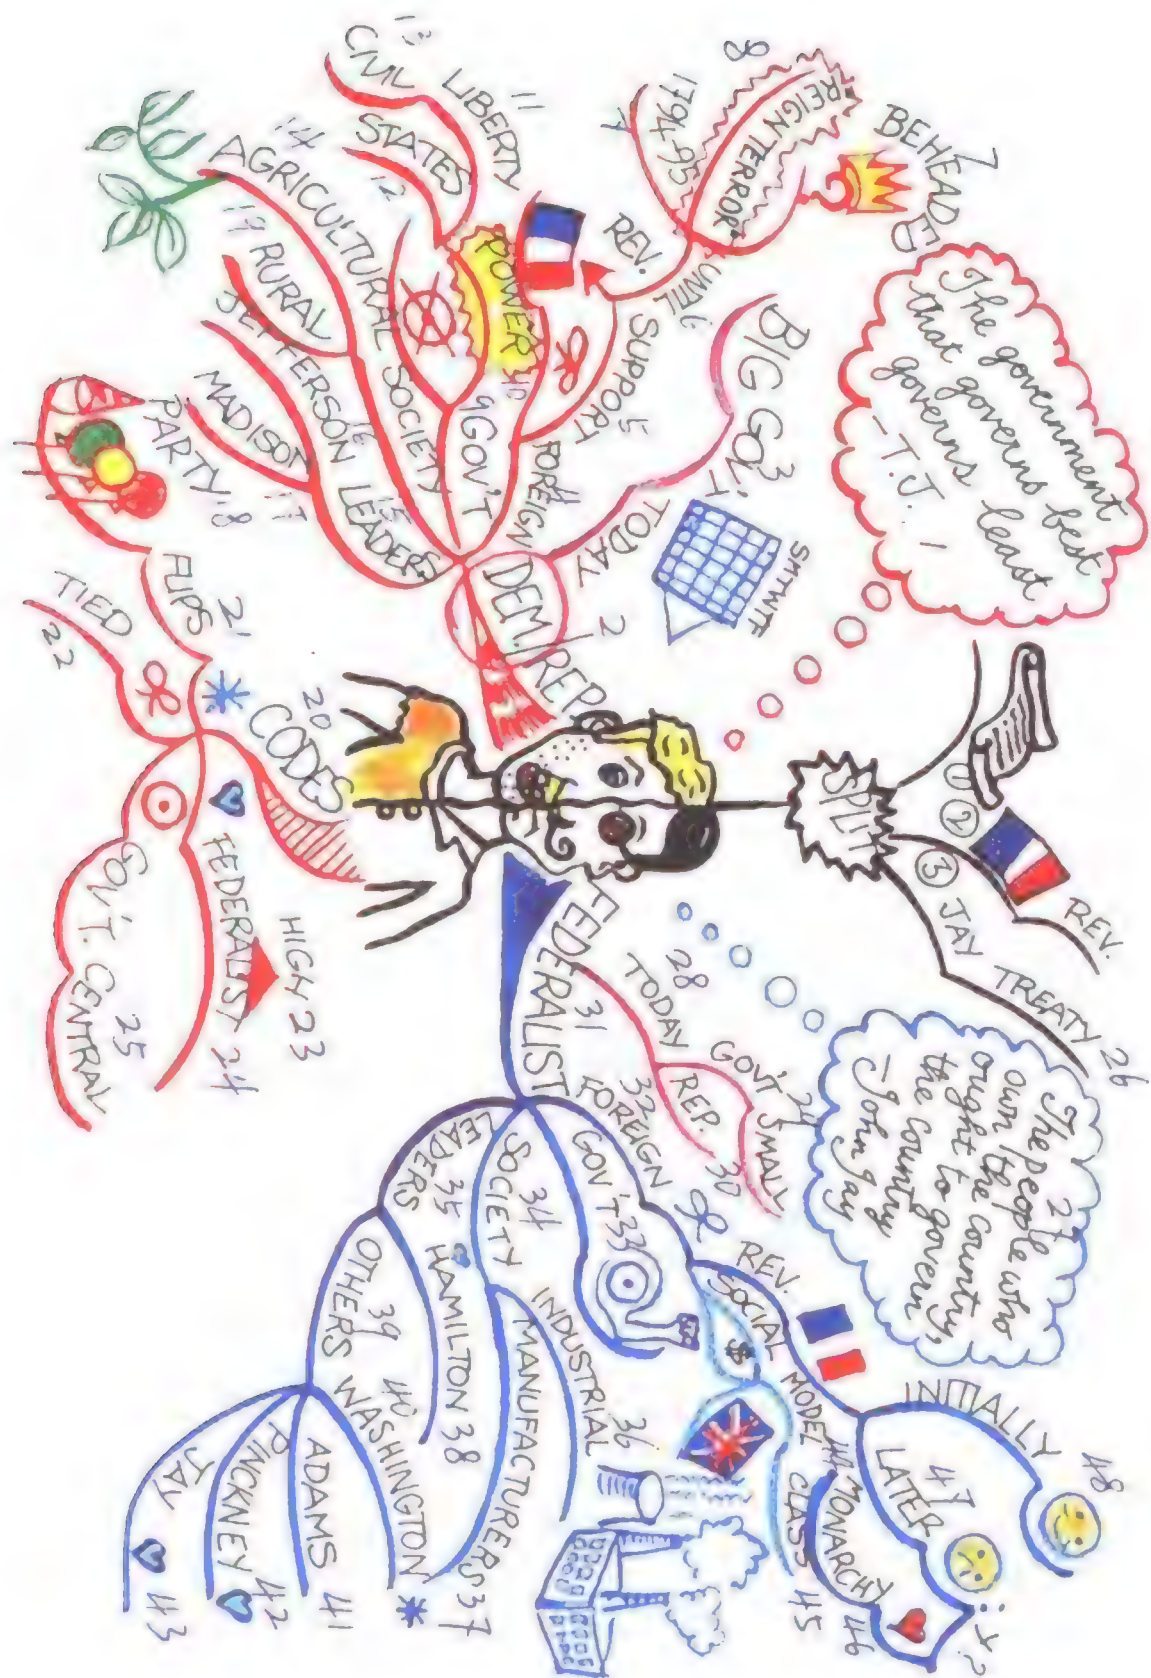 SPLIT
①
② REV.
③ JAY TREATY 26
The government
that governs best
governs least
-T.J. 1
DEM. REP.
TODAY 2
BIG GOV'T 3
SMTWTF
FOREIGN 4
SUPPORT 5
REV.
UNTIL 6
BEHEAD 7
REIGN TERROR
1794-95
8
9 GOV'T
POWER 10
LIBERTY 11
STATES 12
CIVIL 13
SOCIETY
AGRICULTURAL 14
RURAL 19
LEADERS 15
JEFFERSON 16
MADISON 17
PARTY 18
CODES 20
FLIPS 21
TIED 22
HIGH 23
FEDERALIST 24
GOV'T. CENTRAL 25
The people who 27
own the country,
ought to govern
the country
-John Jay
FEDERALIST 31
TODAY 28
GOV'T SMALL 29
REP. 30
FOREIGN 32
GOV'T 33
SOCIETY 34
LEADERS 35
INDUSTRIAL 36
MANUFACTURERS 37
HAMILTON 38
OTHERS 39
WASHINGTON 40
ADAMS 41
PINCKNEY 42
JAY 43
REV.
SOCIAL MODEL 44
$
CLASS 45
MONARCHY 46
LATER 47
INITIALLY 48